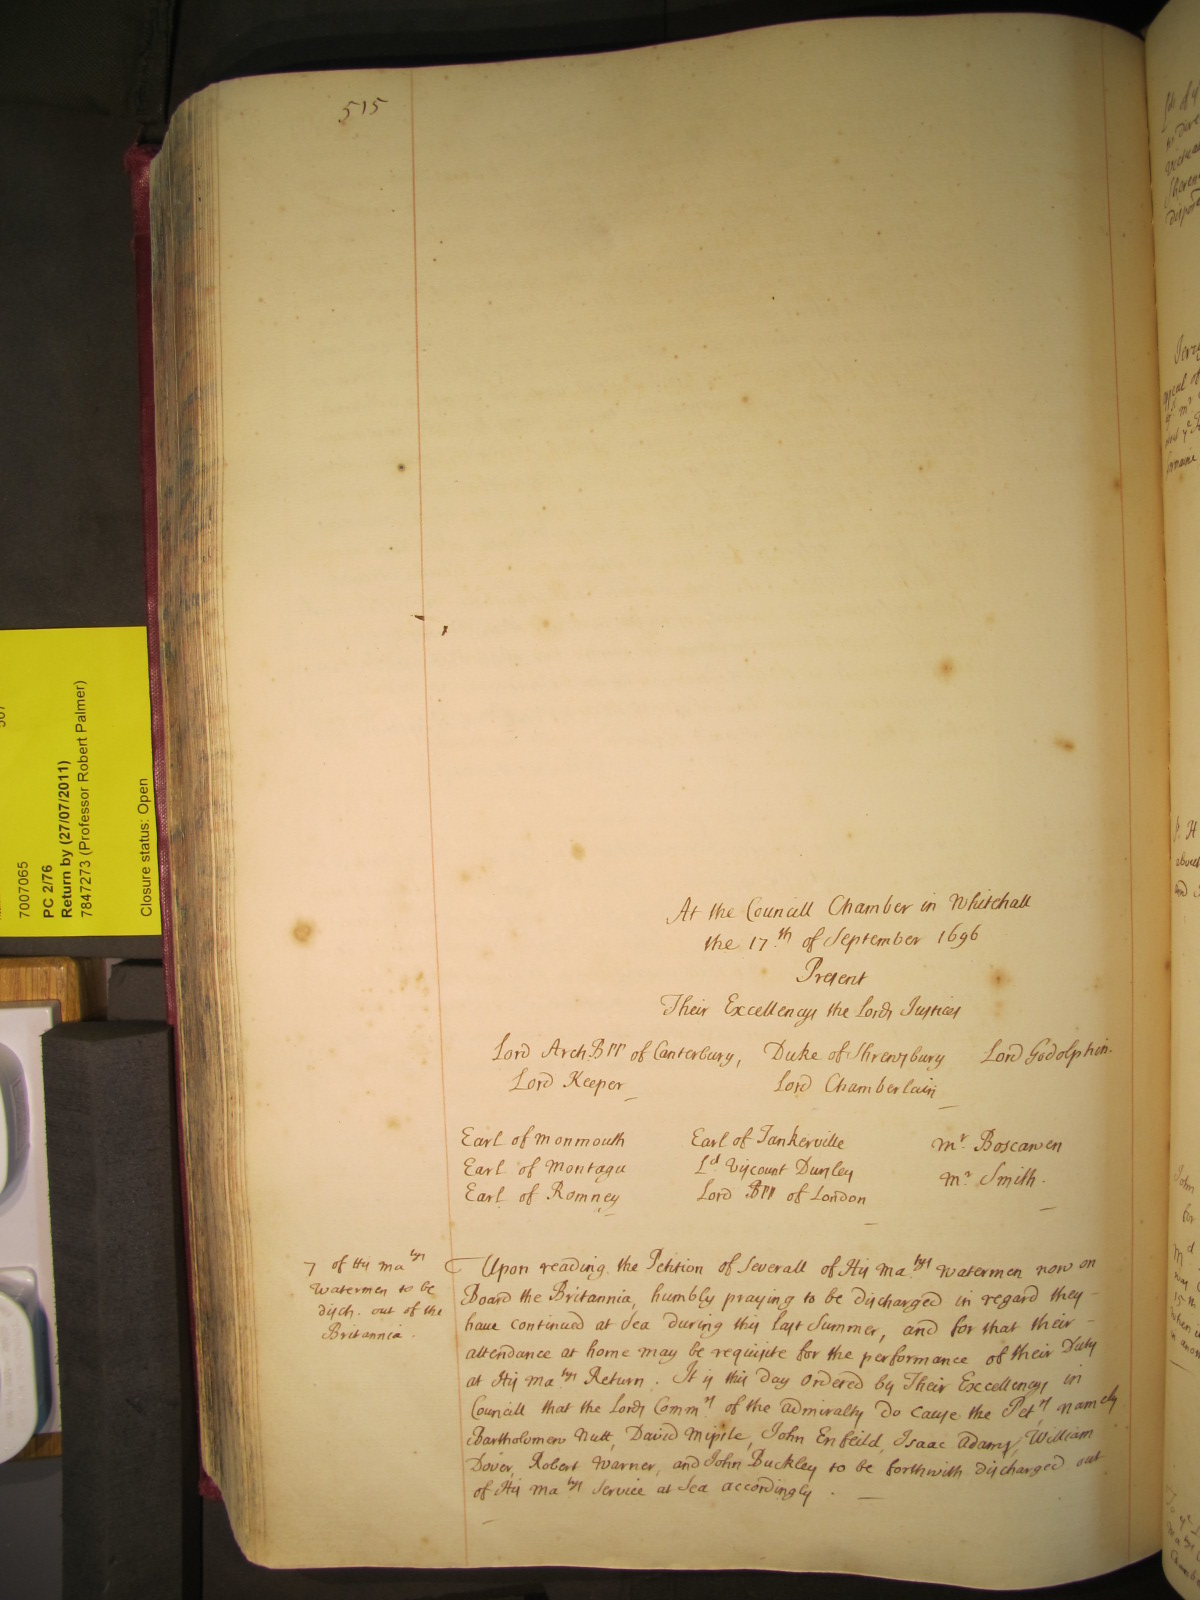 515
At the Councill Chamber in Whitehall
the 17.th of September 1696
Present
Their Excellencys the Lords Justices
Lord Arch.Bpp of Canterbury, Duke of Shrewsbury Lord Godolphin.
Lord Keeper Lord Chamberlain
Earl of Monmouth Earl of Tankerville Mr. Boscawen
Earl of Montagu Ld. Viscount Dursley Mr. Smith.
Earl of Romney Lord Bpp of London
7 of His Ma.tys
Watermen to be
disch. out of the
Britannia.
Upon reading the Petition of Severall of His Ma.tys Watermen now on
Board the Britannia, humbly praying to be discharged in regard they
have continued at Sea during this last Summer, and for that their
attendance at home may be requisite for the performance of their Duty
at His Ma.tys Return. It is this Day Ordered by Their Excellencys in
Councill that the Lords Comm.rs of the Admiralty Do cause the Pet.rs namely
Bartholomew Nutt, David John Enfeild, Isaac Adams, William
Dover, Robert Warner, and John Buckley to be forthwith discharged out
of His Ma.tys Service at Sea accordingly.
7007065
PC 2/76
Return by (27/07/2011)
7847273 (Professor Robert Palmer)
Closure status: Open